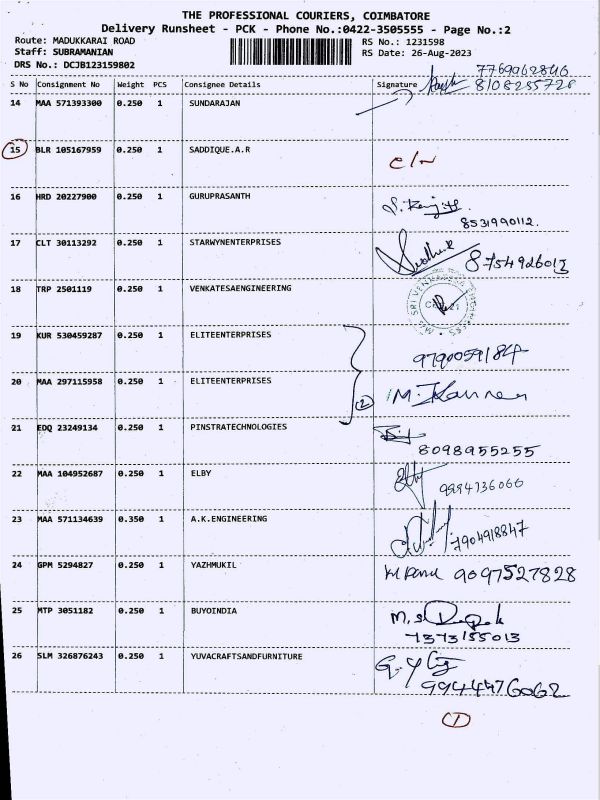 THE PROFESSIONAL COURIERS, COIMBATORE
Delivery Runsheet - PCK - Phone No.:0422-3505555 - Page No.:2
Route: MADUKKARAI ROAD
RS No.: 1231598
Staff: SUBRAMANIAN
RS Date: 26-Aug-2023
DRS No.: DCJB123159802
7769962846
8108255726
S No Consignment No Weight PCS Consignee Details Signature
14 MAA 571393300 0.250 1 SUNDARAJAN
15 BLR 105167959 0.250 1 SADDIQUE.A.R
16 HRD 20227900 0.250 1 GURUPRASANTH
8531990112.
17 CLT 30113292 0.250 1 STARWYNENTERPRISES
8754926013
18 TRP 2501119 0.250 1 VENKATESAENGINEERING
19 KUR 530459287 0.250 1 ELITEENTERPRISES
9790059184
20 MAA 297115958 0.250 1 ELITEENTERPRISES
2
21 EDQ 23249134 0.250 1 PINSTRATECHNOLOGIES
8098955255
22 MAA 104952687 0.250 1 ELBY
9994736066
23 MAA 571134639 0.350 1 A.K.ENGINEERING
7904918847
24 GPM 5294827 0.250 1 YAZHMUKIL 9097527828
25 MTP 3051182 0.250 1 BUYOINDIA
7373155013
26 SLM 326876243 0.250 1 YUVACRAFTSANDFURNITURE
9944476062
1